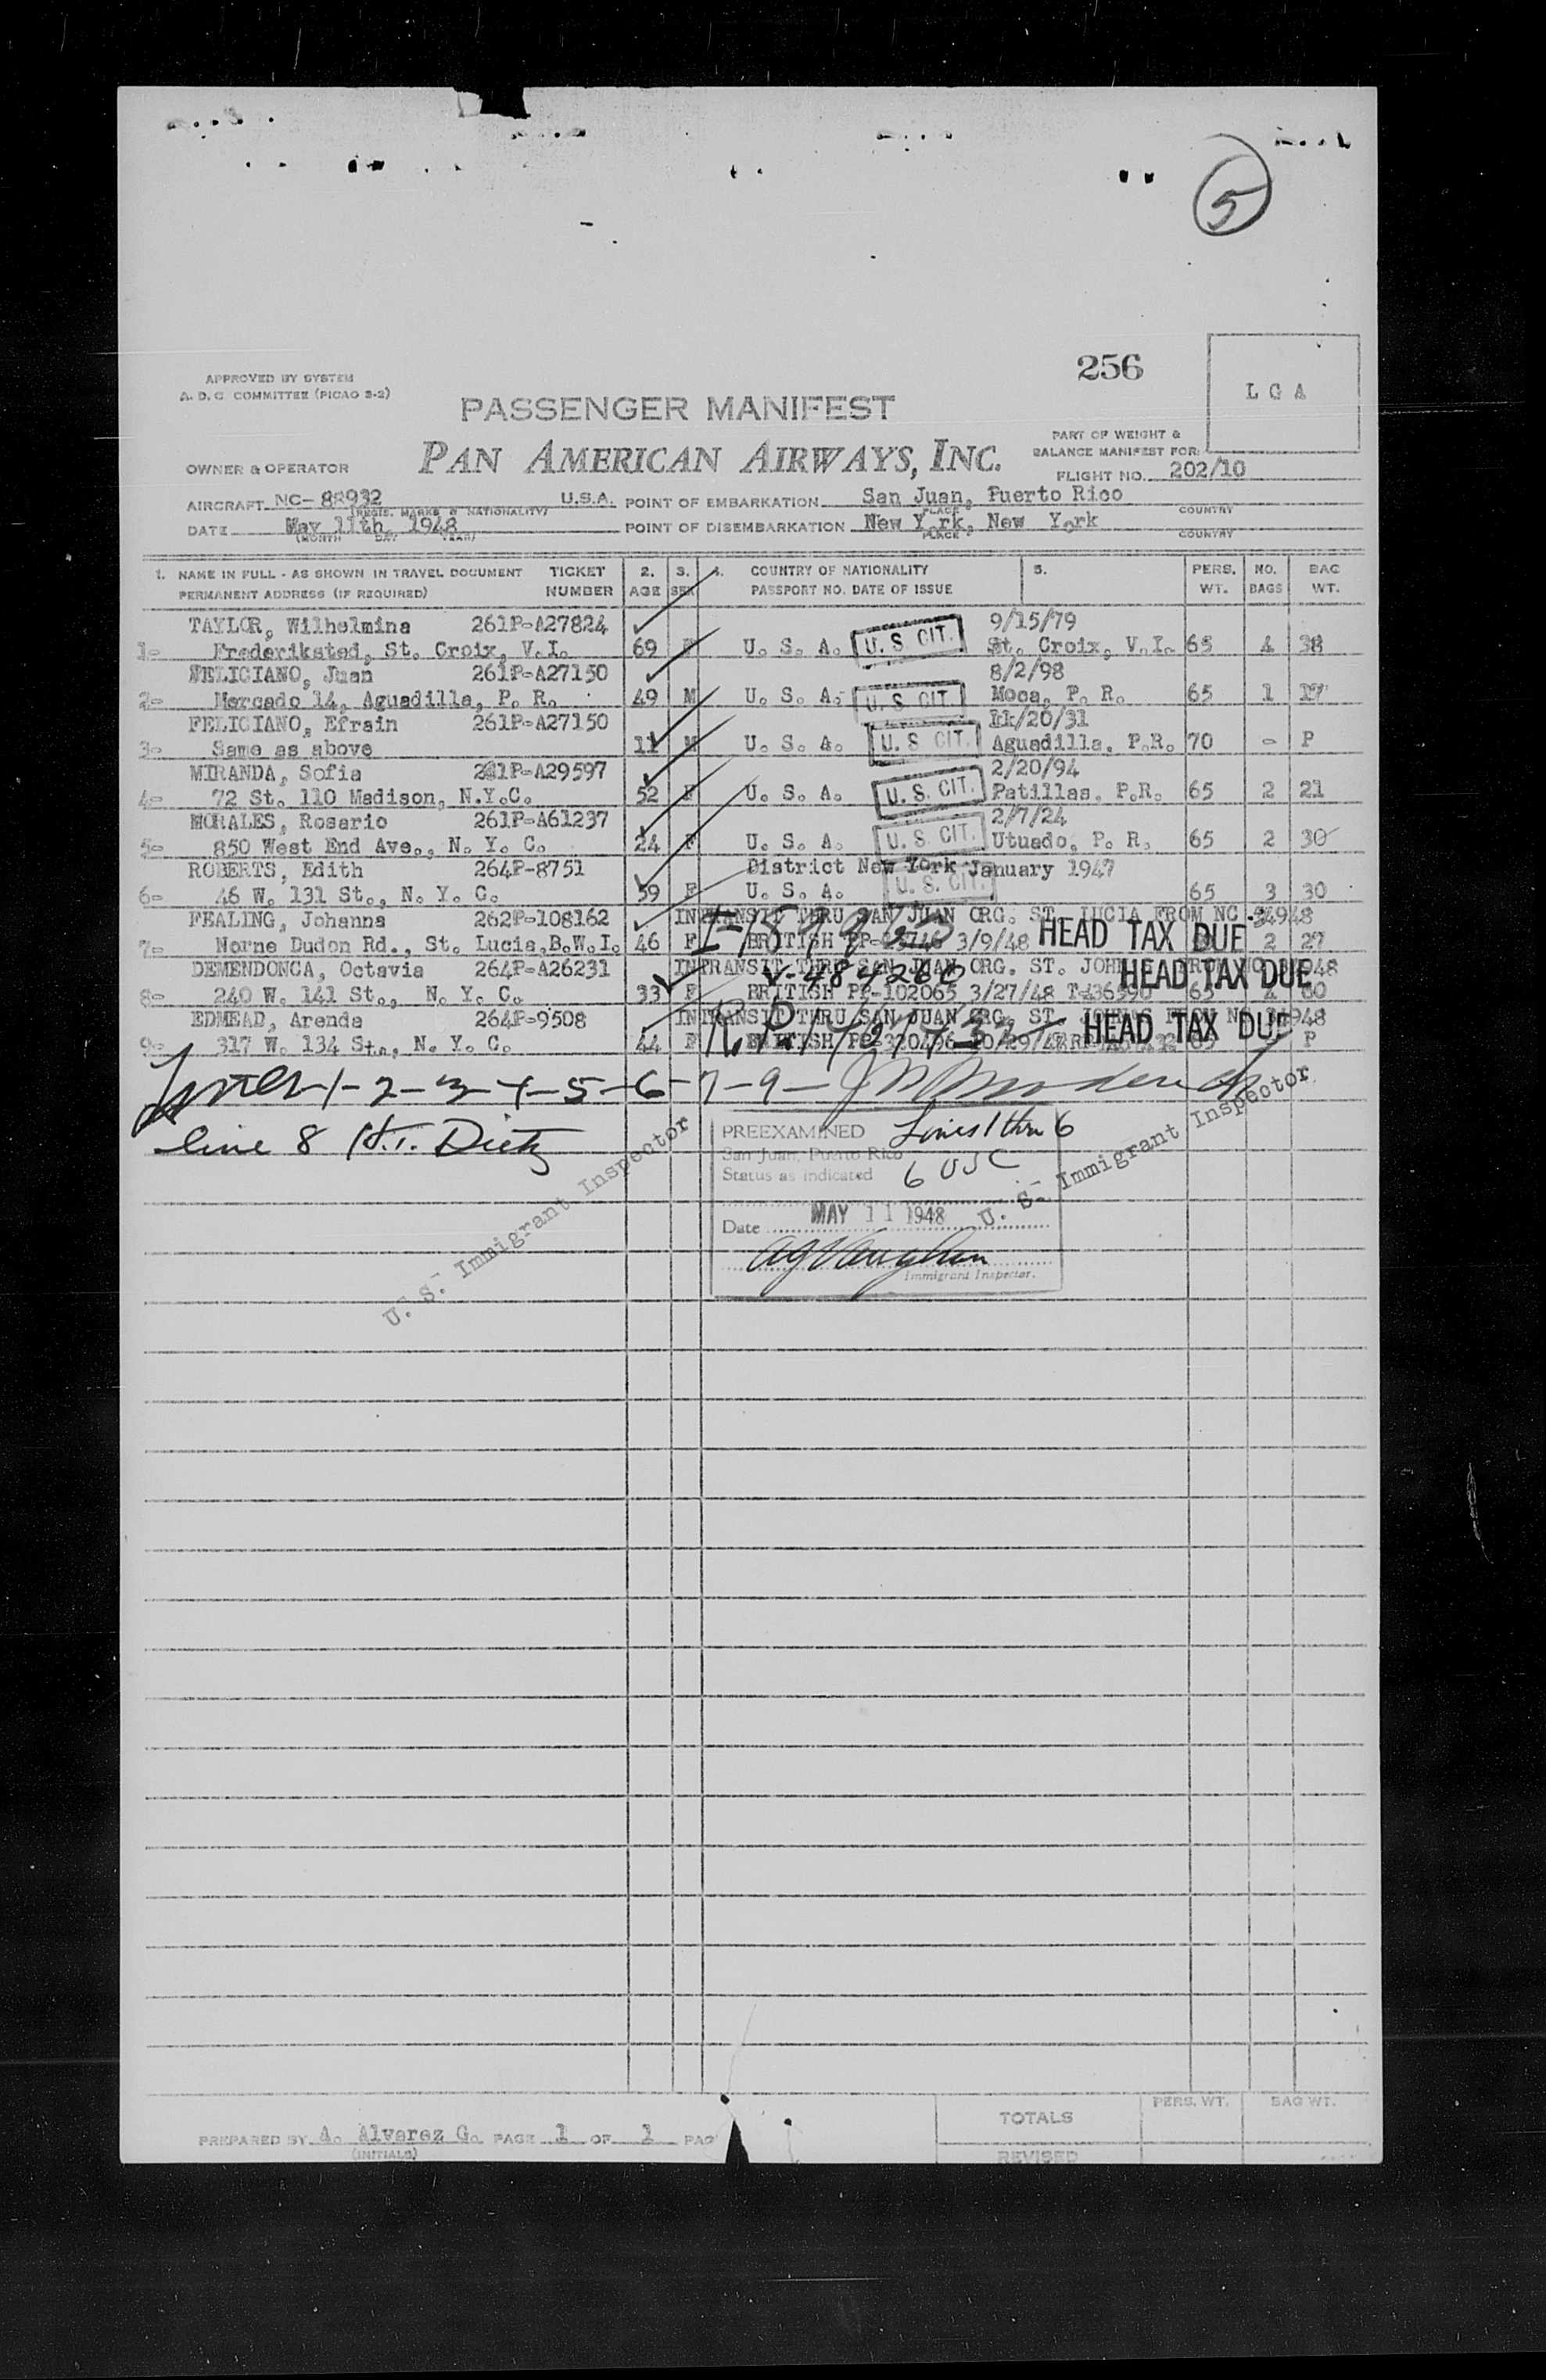 5
256
L G A
APPROVED BY SYSTEM
A. D. C. COMMITTEE (PICAO 2-2)
PASSENGER MANIFEST
PAN AMERICAN AIRWAYS, INC.
PART OF WEIGHT &
BALANCE MANIFEST FOR:
OWNER & OPERATOR
FLIGHT NO. 202/10
AIRCRAFT NC-88932 U.S.A. POINT OF EMBARKATION San Juan, Puerto Rico
(REGIS. MARKS & NATIONALITY) PLACE COUNTRY
DATE May 11th, 1948 POINT OF DISEMBARKATION New York, New York
(MONTH DAY YEAR) PLACE COUNTRY
1. NAME IN FULL - AS SHOWN IN TRAVEL DOCUMENT TICKET 2. 3. 4. COUNTRY OF NATIONALITY 5. PERS. NO. BAG
PERMANENT ADDRESS (IF REQUIRED) NUMBER AGE SEX PASSPORT NO. DATE OF ISSUE WT. BAGS WT.
TAYLOR, Wilhelmina 261P-A27824 9/15/79
1- Frederiksted, St. Croix, V.I. 69 F U. S. A. U. S CIT. St. Croix, V.I. 65 4 38
FELICIANO, Juan 261P-A27150 8/2/98
2- Mercado 14, Aguadilla, P. R. 49 M U. S. A. U. S CIT. Moca, P. R. 65 1 17
FELICIANO, Efrain 261P-A27150 /20/31
3- Same as above 11 M U. S. A. U. S CIT. Aguadilla, P.R. 70 - P
MIRANDA, Sofia 261P-A29597 2/20/94
4- 72 St. 110 Madison, N.Y.C. 52 F U. S. A. U. S. CIT. Patillas, P.R. 65 2 21
MORALES, Rosario 261P-A61237 2/7/24
5- 850 West End Ave., N. Y. C. 24 F U. S. A. U. S. CIT. Utuado, P. R. 65 2 30
ROBERTS, Edith 264P-8751 District New York January 1947
6- 46 W. 131 St., N. Y. C. 59 F U. S. A. U. S. CIT. 65 3 30
FEALING, Johanna 262P-108162 INTRANSIT THRU SAN JUAN ORG. ST. LUCIA FROM NC 34948
7- Norne Dudon Rd., St. Lucia,B.W.I. 46 F BRITISH 3/9/48 HEAD TAX DUE 2 27
DEMENDONCA, Octavia 264P-A26231 INTRANSIT THRU SAN JUAN ORG. ST. HEAD TAX DUE
8- 240 W. 141 St., N. Y. C. 33 F V-484260 BRITISH PP-102065 3/27/48 65 4 60
EDMEAD, Arenda 264P-9508 INTRANSIT THRU SAN JUAN ORG. ST.
9- 317 W. 134 St., N. Y. C. 44 F BRITISH HEAD TAX DUE P
Lines 1-2-3-4-5-6-7-9-
line 8 H.T. Dietz
U. S. Immigrant Inspector
U. S. Immigrant Inspector
PREEXAMINED Lines 1 thru 6
San Juan, Puerto Rico
Status as indicated 6 USC
Date MAY 11 1948
AG Vaughan
Immigrant Inspector.
PREPARED BY A. Alvarez G. PAGE 1 OF 1 PAG
(INITIALS)
TOTALS PERS. WT. BAG WT.
REVISED